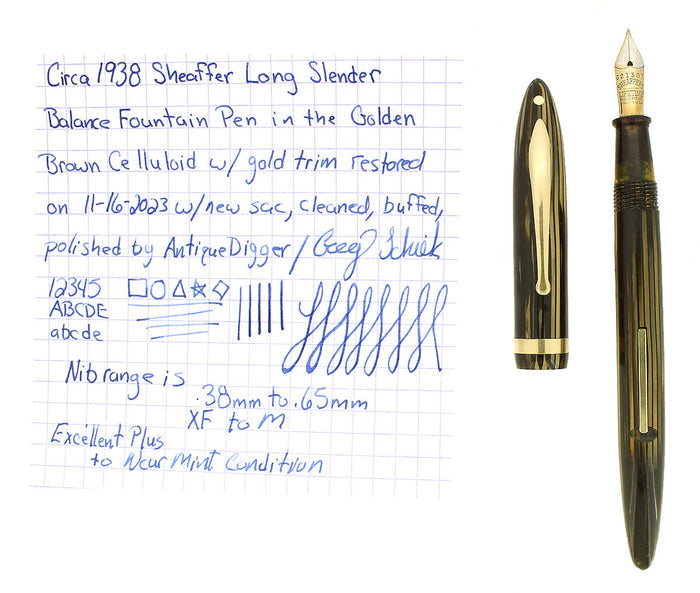 Circa 1938 Sheaffer Long Slender
Balance Fountain Pen in the Golden
Brown Celluloid w/ gold trim restored
on 11-16-2023 w/new sac, cleaned, buffed,
polished by AntiqueDigger/
12345
ABCDE
abcde
Nib range is
.38mm to .65mm
XF to M
Excellent Plus
to Near Mint Condition
SHEAFFER'S
LIFETIME